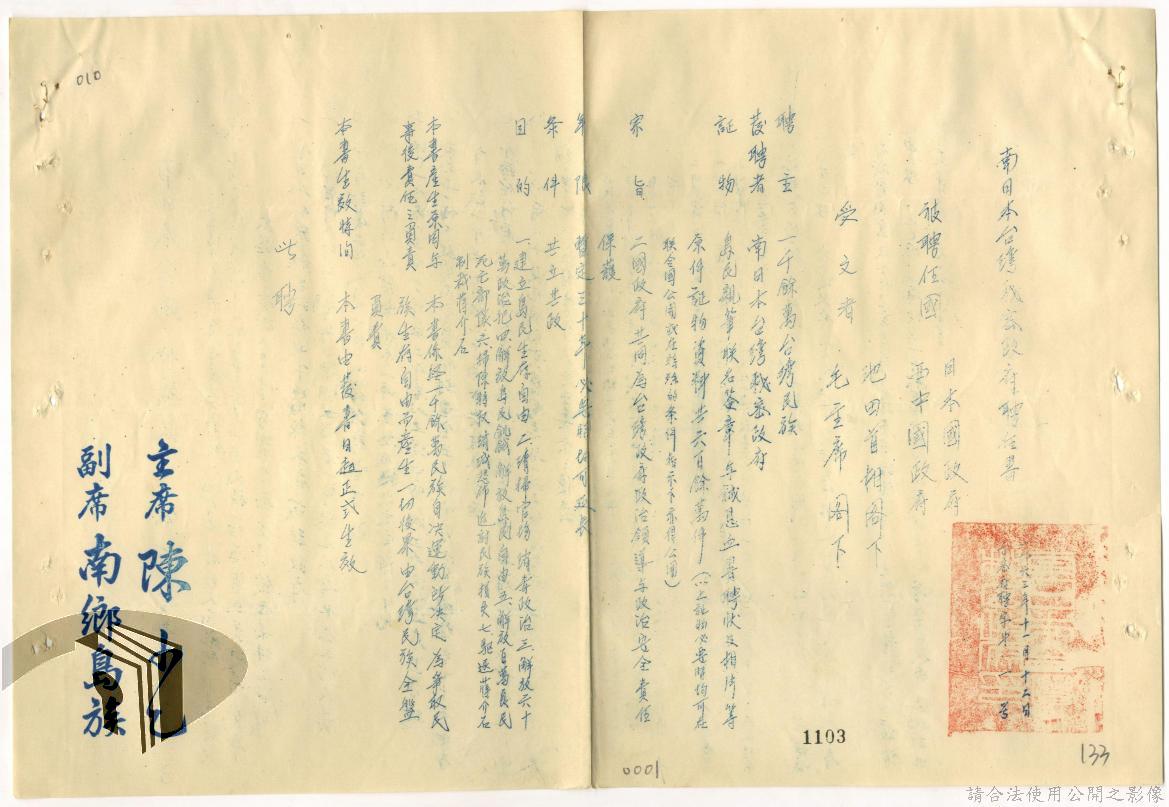 南日本台灣戡憲政府聘任書
被聘任國 日本國政府
中國政府
受文者 池田首相閣下
毛主席閣下
聘主 一千餘萬台灣民族
發聘者 南日本台灣戡憲政府
証物 島民親筆聯名簽章 血書聘狀及相片等
原件証物資料共六百餘萬件(以上証物必要時均可在
聯合國公開或在特殊的条件指示下亦得公開)
宗旨 二國政府共同為台灣政府政治領導與政治安全責任
保護
年限 暫定三十年必要時均可延長
条件 共立共政
目的 一、建立島民生存自由二、清掃官僚 政治三、解放六十
萬政治犯四、解放 民 解放島民自由五、解放百萬 民
死亡部隊六、掃除特权 民族損失七、驅逐蔣介石
制裁蔣介石
本書產生原因與 本書係經一千餘萬民族自决運動所决定為爭取民
事後責任之負責 族生存自由而產生一切後果由台灣民族全盤
負責
本書生效時間 本書由發書日起正式生效
此聘
主席 陳
副席 南鄉島族
三年十一月十二日
010
1103
0001
133
請合法使用公開之影像